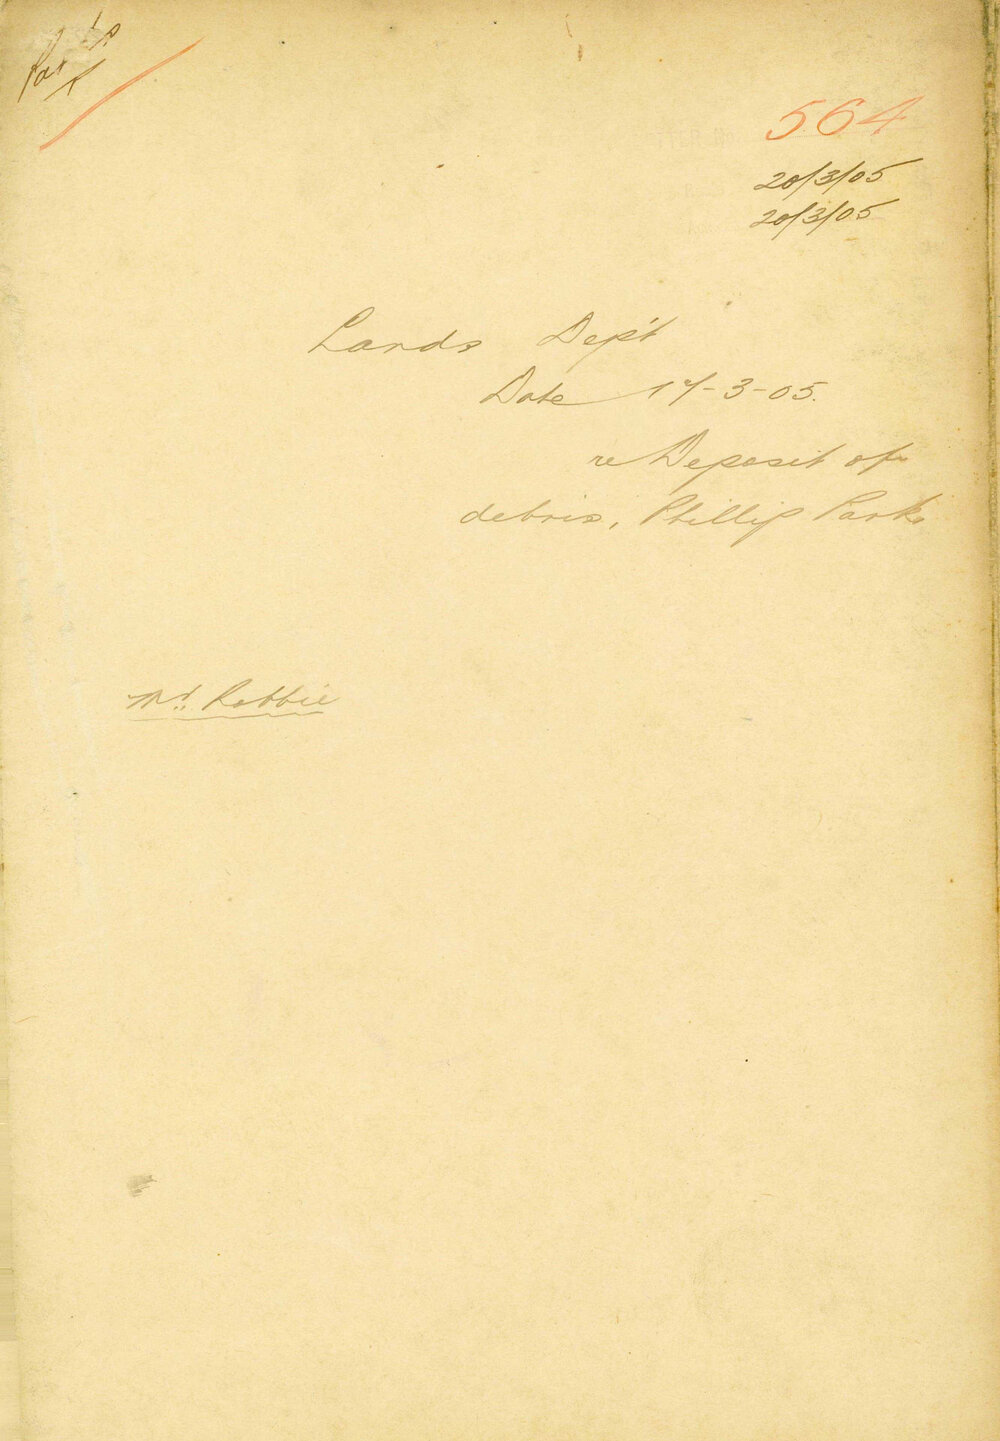 564
20/3/05
20/3/05
Lands Dep't
Date 17-3-05.
re Deposit of
debris, Phillip Park
Mr. Robbie